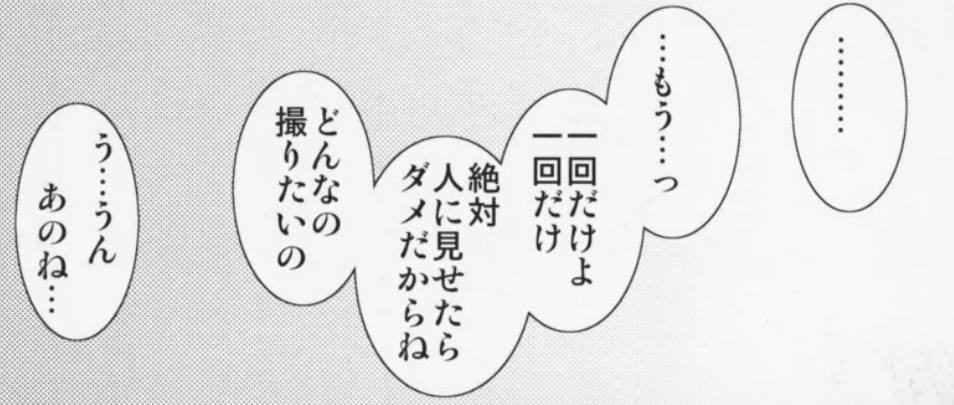 ………
…もう…っ
一回だけよ
一回だけ
絶対
人に見せたら
ダメだからね
どんなの
撮りたいの
う…うん
あのね…